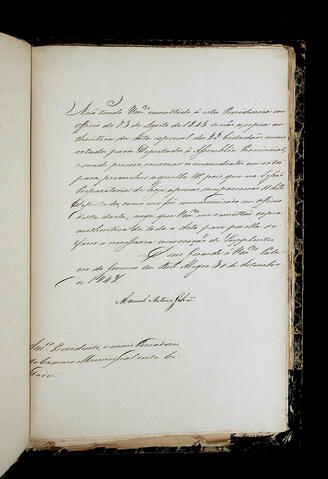 Não tendo Vm.ces remettido á esta Presidencia em
officio de 23 de Agosto de 1845 senão a copia au-
thentica da Acta especial dos 28 Cidadãos mais
votados para Deputados á Assembléa Provincial,
e sendo preciso convocar os immediatos em votos
para preencher aquella Al pois que na Sessão
Preparatoria de hoje apenas compareceram
Deputados, como me foi communicado em officio
desta data, cumpre que Vm.ces me remettão copia
authentica de toda a Acta para por ella se
fazer a necessaria convocação de Supplentes.
Deos Guarde á Vm.ces Pala-
cio do Governo em Porto Alegre 30 de Setembro
de 1847
Manoel Antonio Galvão
Snr.es Presidente, e mais Vereadores
da Camara Municipal desta Ci-
dade.